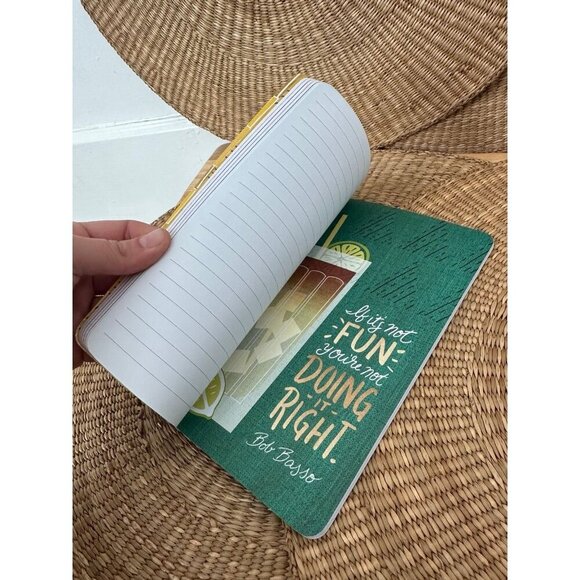 If it's not
FUN
you're not
DOING
IT
RIGHT.
Bob Basso